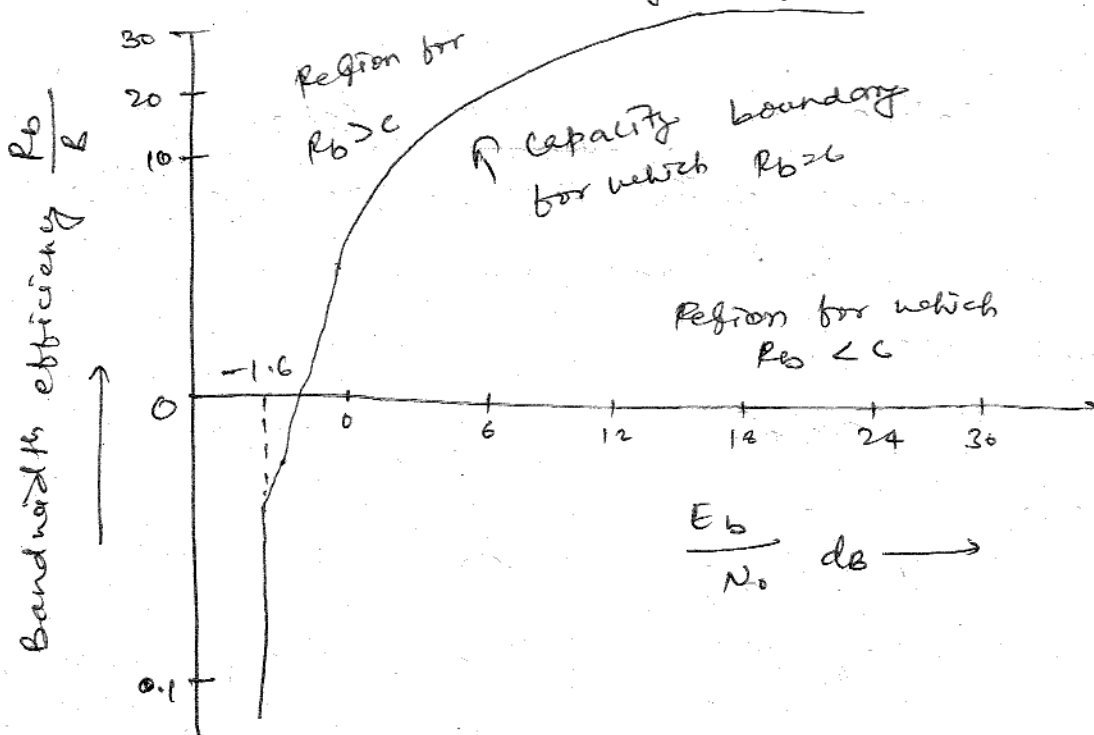 30
20
10
0
0.1
Bandwidth efficiency Rb/B
Region for
Rb > C
↑ Capacity boundary
for which Rb = C
Region for which
Rb < C
-1.6
0 6 12 18 24 30
Eb/N0 dB